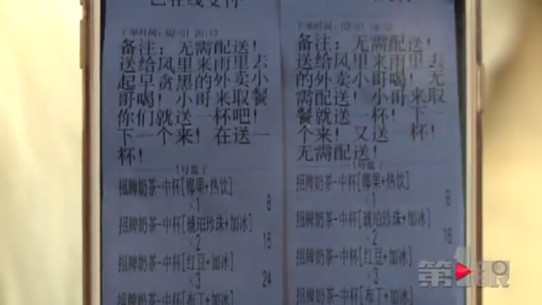 已在线支付
下单时间：02-01 20:13
备注：无需配送！
送给风里来雨里去
起早贪黑的外卖小
哥喝！小哥来取餐
你们就送一杯吧！
下一个来！在送一
杯！
招牌奶茶-中杯[椰果+热饮]
×1
8
招牌奶茶-中杯[琥珀珍珠+加冰]
×2
16
招牌奶茶-中杯[红豆+加冰]
×3
24
招牌奶茶-中杯[布丁+加冰]
备注：无需配送！
送给风里来雨里去
的外卖小哥喝！无
需配送！小哥来取
餐就送一杯！下一
个来！又送一杯！
无需配送！
招牌奶茶-中杯[椰果+热饮]
×1
8
招牌奶茶-中杯[琥珀珍珠+加冰]
×2
16
招牌奶茶-中杯[红豆+加冰]
×3
招牌奶茶-中杯[布丁+加冰]
第1眼